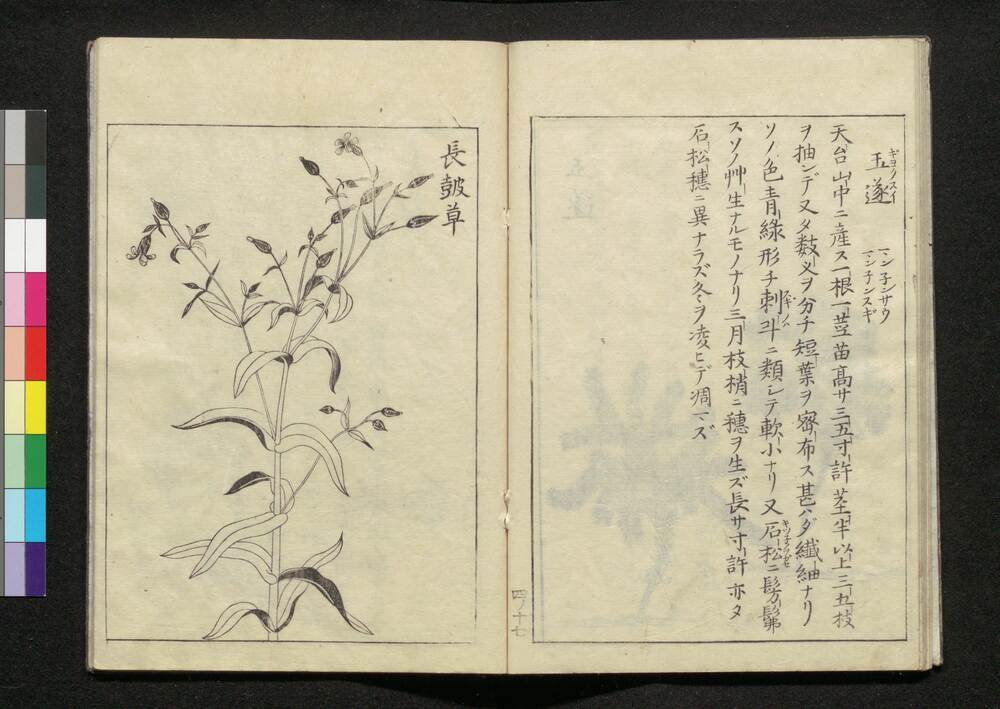 玉遂
ギヨクスイ
マン子ンサウ
マンチンスギ
天台山中ニ産ス一根一莖苗高サ三五寸許莖半以上三五枝
ヲ抽ンデ又タ数乂ヲ分チ短葉ヲ密布ス甚ハダ纎細ナリ
ソノ色青緑形チ刺斗ニ類シテ軟小ナリ又石松ニ髣髴
スソノ艸生ナルモノナリ三月枝梢ニ穗ヲ生ズ長サ寸許亦タ
石松穗ニ異ナラズ冬ヲ凌ヒデ凋マズ
四ノ十七
長皷草